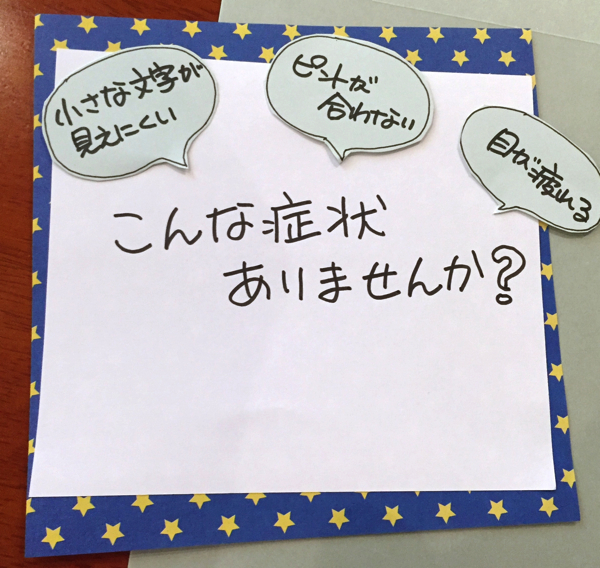 小さな文字が
見えにくい
ピントが
合わない
目が疲れる
こんな症状
ありませんか?